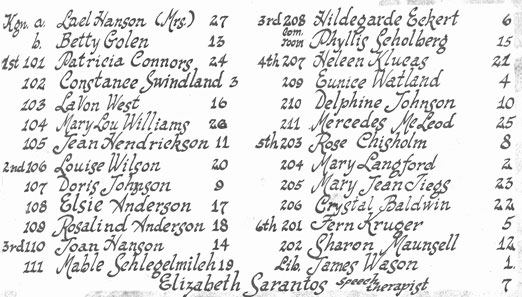 Kgn. a. Lael Hanson (Mrs) 27
b. Betty Golen 13
1st 101 Patricia Connors 24
102 Constance Swindland 3
103 LaVon West 16
104 Mary Lou Williams 26
105 Jean Hendrickson 11
2nd 106 Louise Wilson 20
107 Doris Johnson 9
108 Elsie Anderson 17
109 Rosalind Anderson 18
3rd 110 Joan Hanson 14
111 Mable Schlegelmilch 19
3rd 208 Hildegarde Eckert 6
Com. room Phyllis Scholberg 15
4th 207 Heleen Klucas 21
209 Eunice Watland 4
210 Delphine Johnson 10
211 Mercedes McLeod 25
5th 203 Rose Chisholm 8
204 Mary Langford 2
205 Mary Jean Tiegs 23
206 Crystal Baldwin 22
6th 201 Fern Kruger 5
202 Sharon Maunsell 12
Lib. James Wason 1
Elizabeth Sarantos Speech Therapist 7